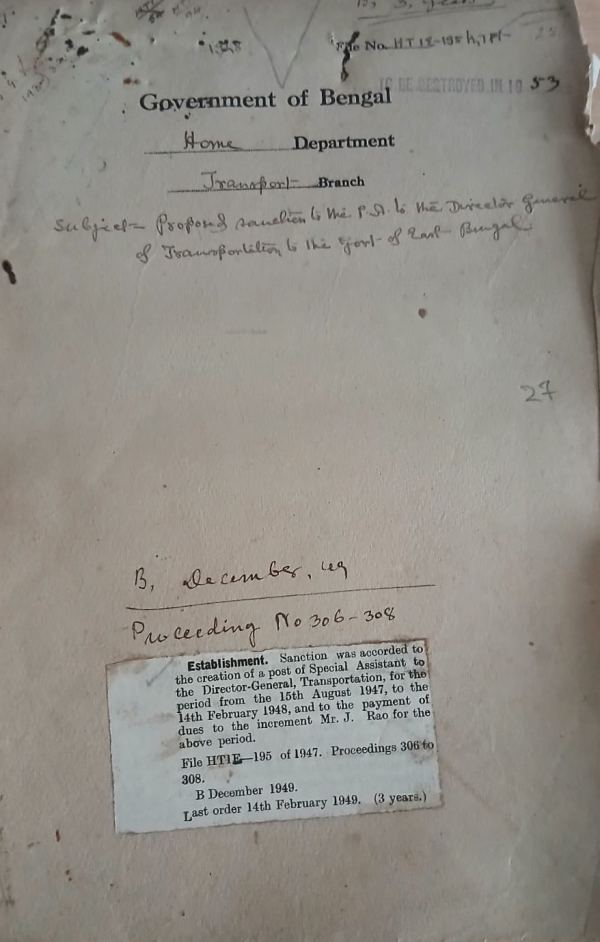 File No. HT1E-195/47
TO BE DESTROYED IN 19 53
Government of Bengal
Home Department
Transport Branch
Subject- Proposed sanction to the P.A. to the Director General
of Transportation to the Govt. of East Bengal.
27
B, December, 49
Proceeding No 306-308
Establishment. Sanction was accorded to
the creation of a post of Special Assistant to
the Director-General, Transportation, for the
period from the 15th August 1947, to the
14th February 1948, and to the payment of
dues to the increment Mr. J. Rao for the
above period.
File HT1E—195 of 1947. Proceedings 306 to
308.
B December 1949.
Last order 14th February 1949. (3 years.)